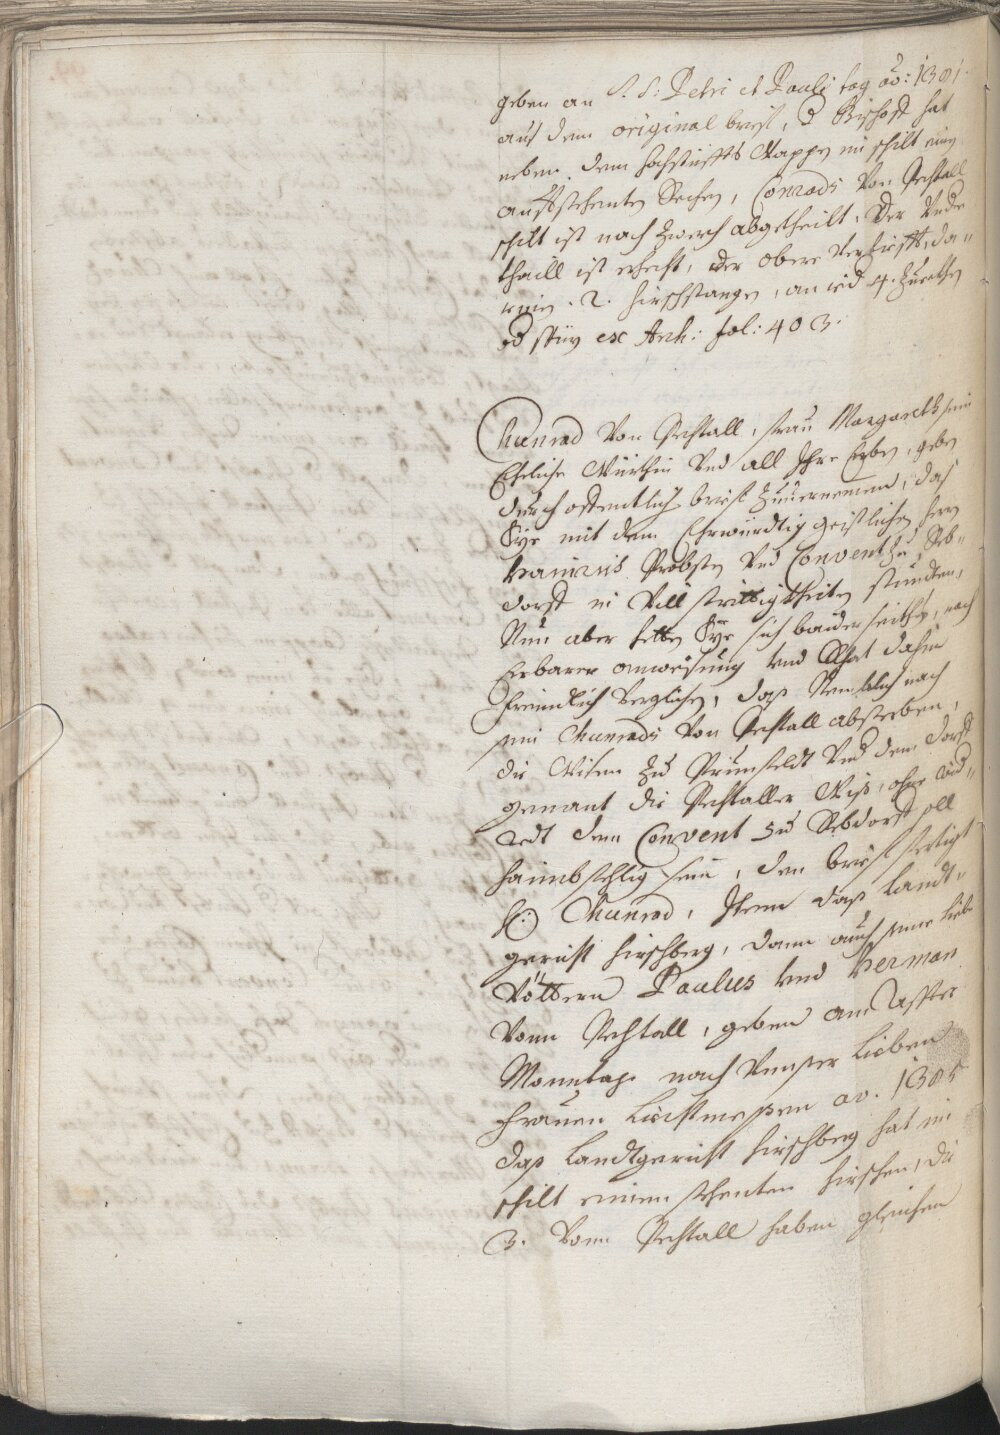 geben an S. S: Petri et Pauli tag ao: 1381.
auß dem original brieff, d Bischoff hat
neben dem hochstiffts Wappen im schilt ein
auffstehenten Rechen, Conrads von Rechtall
schilt ist nach zwerch abgetheilt, der under
theill ist erhecht, der obere
2. hirschstangen, an 4.
ex Arch: fol: 403.

Chunrad von Rechtall, frau Margareth sein
Eheliche Würthin und all Ihre Erben, geben
durch offentlich brieff zuvernemen, das
Sye mit dem Ehrwürdtig geistlichen hern
Probsten und Convent zu Reb-
dorff in vill strittigkheiten stundten,
Nun aber hetten Sye sich beiderseiths, nach
Erbarer anweisung und Rhat dahin
freundtlich verglichen, daß Nemblich nach
sein Chunrads von Rechtall absterben,
die Wisen zu Prunfeldt und dem dorff
genant die Rechtaller Wiß, ohne wid-
redt dem Convent zu Rebdorff soll
haimbfellig sein, den brieff fertigt
Chunrad, Item daß Landt-
gericht hirschberg, dann auch seine liebe
Vöttern Paulus und Herman
vom Rechtall, geben am Affter
Monntag nach Unnser Lieben
frauen Liechtmeßen ao. 1385
daß Landtgericht hirschberg hat im
schilt einen stehenten hirschen, die
3. vom Rechtall haben gleichen